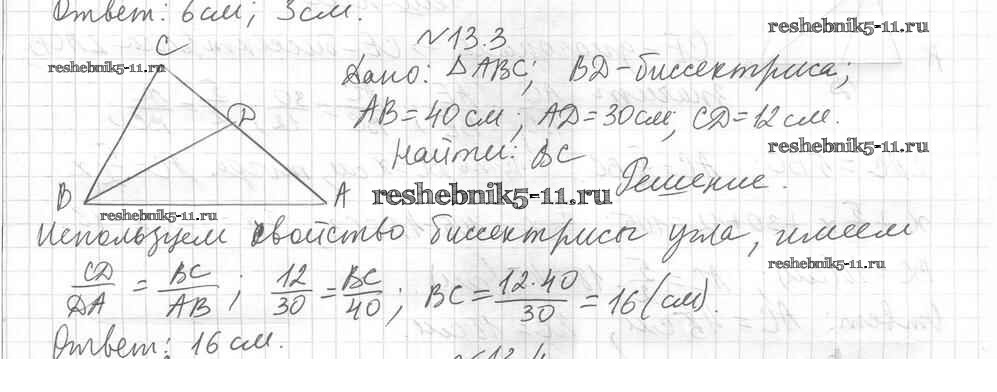 Ответ: 6 см; 3 см.
reshebnik5-11.ru
№13.3
C
reshebnik5-11.ru
Дано: ΔABC; BD - биссектриса;
D
AB = 40 см; AD = 30 см; CD = 12 см.
Найти: BC
reshebnik5-11.ru
Решение.
B
A
reshebnik5-11.ru
reshebnik5-11.ru
Используем свойство биссектрисы угла, имеем
reshebnik5-11.ru
CD/DA = BC/AB; 12/30 = BC/40; BC = 12·40/30 = 16 (см).
Ответ: 16 см.
№13.4